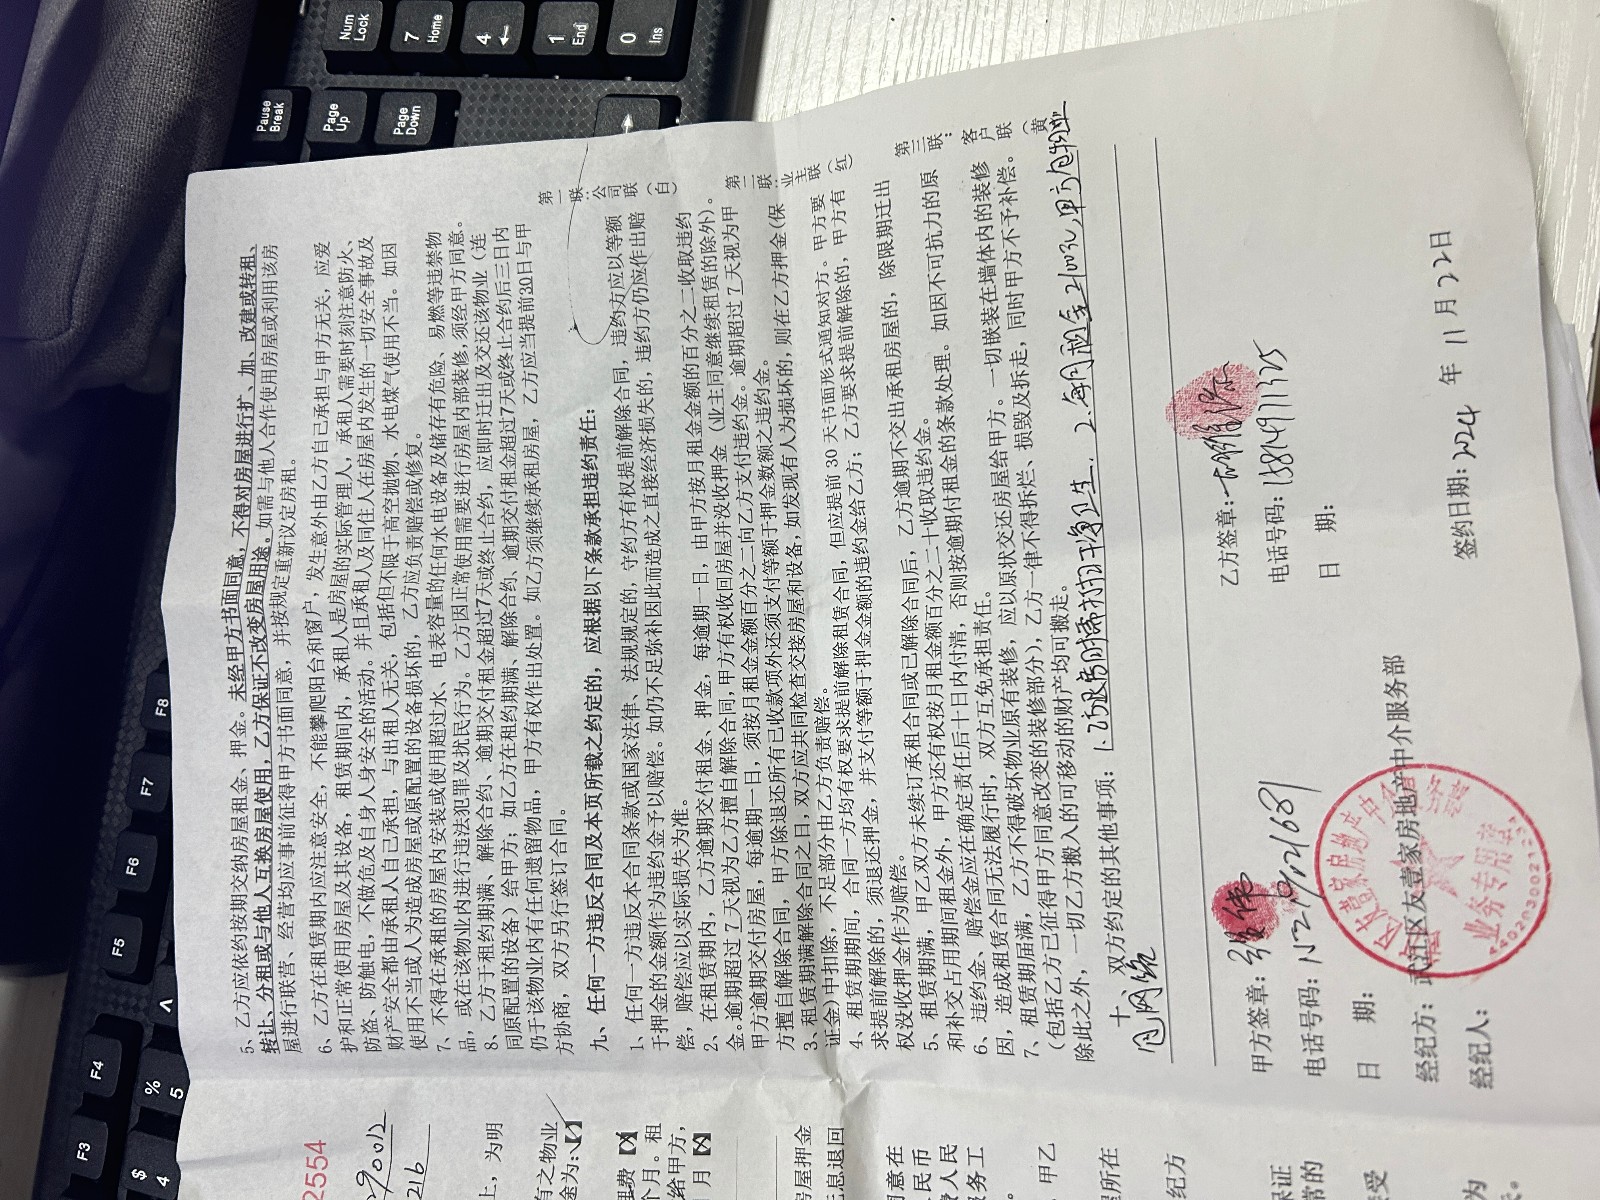 5、乙方应依约按期交纳房屋租金、押金。未经甲方书面同意，不得对房屋进行扩、加、改建或转租、
转让、分租或与他人互换房屋使用，乙方保证不改变房屋用途。如需与他人合作使用房屋或利用该房
屋进行联营、经营均应事前征得甲方书面同意，并按规定重新议定房租。
6、乙方在租赁期内应注意安全，不能攀爬阳台和窗户，发生意外由乙方自己承担与甲方无关，应爱
护和正常使用房屋及其设备，租赁期间内，承租人是房屋的实际管理人，承租人需要时刻注意防火、
防盗、防触电，不做危及自身人身安全的活动。并且承租人及同住人在房屋内发生的一切安全事故及
财产安全都由承租人自己承担，与出租人无关，包括但不限于高空抛物、水电煤气使用不当。如因
使用不当或人为造成房屋或原配置的设备损坏的，乙方应负责赔偿或修复。
7、不得在承租的房屋内安装或使用超过水、电表容量的任何水电设备及储存有危险、易燃等违禁物
品，或在该物业内进行违法犯罪及扰民行为。乙方因正常使用需要进行房屋内部装修，须经甲方同意。
8、乙方于租约期满、解除合约、逾期交付租金超过7天或终止合约，应即时迁出及交还该物业（连
同原配置的设备）给甲方；如乙方在租约期满、解除合约、逾期交付租金超过7天或终止合约后三日内
仍于该物业内有任何遗留物品，甲方有权作出处置。如乙方须继续承租房屋，乙方应当提前30日与甲
方协商，双方另行签订合同。
九、任何一方违反合同及本页所载之约定的，应根据以下条款承担违约责任：
1、任何一方违反本合同条款或国家法律、法规规定的，守约方有权提前解除合同，违约方应以等额
于押金的金额作为违约金予以赔偿。如仍不足弥补因此而造成之直接经济损失的，违约方仍应作出赔
偿，赔偿应以实际损失为准。
2、在租赁期内，乙方逾期交付租金、押金，每逾期一日，由甲方按月租金金额的百分之二收取违约
金。逾期超过7天视为乙方擅自解除合同，甲方有权收回房屋并没收押金（业主同意继续租赁的除外）。
甲方逾期交付房屋，每逾期一日，须按月租金金额百分之二向乙方支付违约金。逾期超过7天视为甲
方擅自解除合同，甲方除退还所有已收款项外还须支付等额于押金数额之违约金。
3、租赁期满解除合同之日，双方应共同检查交接房屋和设备，如发现有人为损坏的，则在乙方押金(保
证金)中扣除，不足部分由乙方负责赔偿。
4、租赁期期间，合同一方均有权要求提前解除租赁合同，但应提前30天书面形式通知对方。甲方要
求提前解除的，须退还押金，并支付等额于押金金额的违约金给乙方；乙方要求提前解除的，甲方有
权没收押金作为赔偿。
5、租赁期满，甲乙双方未续订承租合同或已解除合同后，乙方逾期不交出承租房屋的，除限期迁出
和补交占用期间租金外，甲方还有权按月租金额百分之二十收取违约金。
6、违约金、赔偿金应在确定责任后十日内付清，否则按逾期付租金的条款处理。如因不可抗力的原
因，造成租赁合同无法履行时，双方互免承担责任。
7、租赁期届满，乙方不得破坏物业原有装修，应以原状交还房屋给甲方。一切嵌装在墙体内的装修
（包括乙方已征得甲方同意改变的装修部分），乙方一律不得拆烂、损毁及拆走，同时甲方不予补偿。
除此之外，一切乙方搬入的可移动的财产均可搬走。
十、双方约定的其他事项：1.乙方退房时需打扫干净卫生。2.每月租金2100元甲方包物业
包网络
第一联：公司联（白）
第二联：业主联（红）
第三联：客户联（黄
甲方签章：
电话号码：
日 期：
经纪方：武江区友壹家房地产中介服务部
经纪人：
业务专用章
乙方签章：
电话号码：15814971325
日 期：
签约日期：2024 年 11 月 22日
2554
290012
216
上，为明
有之物业
金为：
理费
个月。租
给甲方，
月
房屋押金
无息退回
意在
民币
费人民
服务工
。
，甲乙
屋所在
纪方
保证
常的
接受
为
。
Num Lock
7 Home
4
1 End
0 Ins
Pause Break
Page Up
Page Down
F3
F4
F5
F6
F7
F8
$ 4
% 5
^